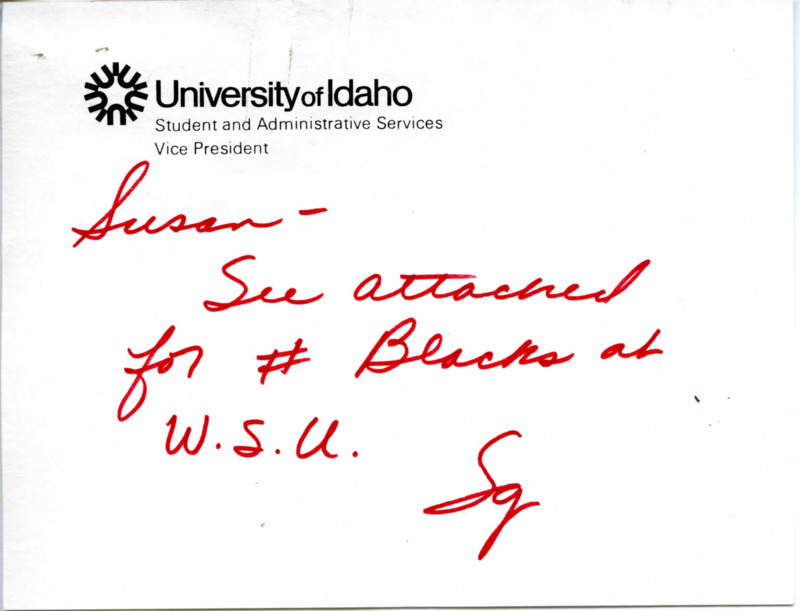 University of Idaho
Student and Administrative Services
Vice President
Susan -
See attached
for # Blacks at
W.S.U.
Sg